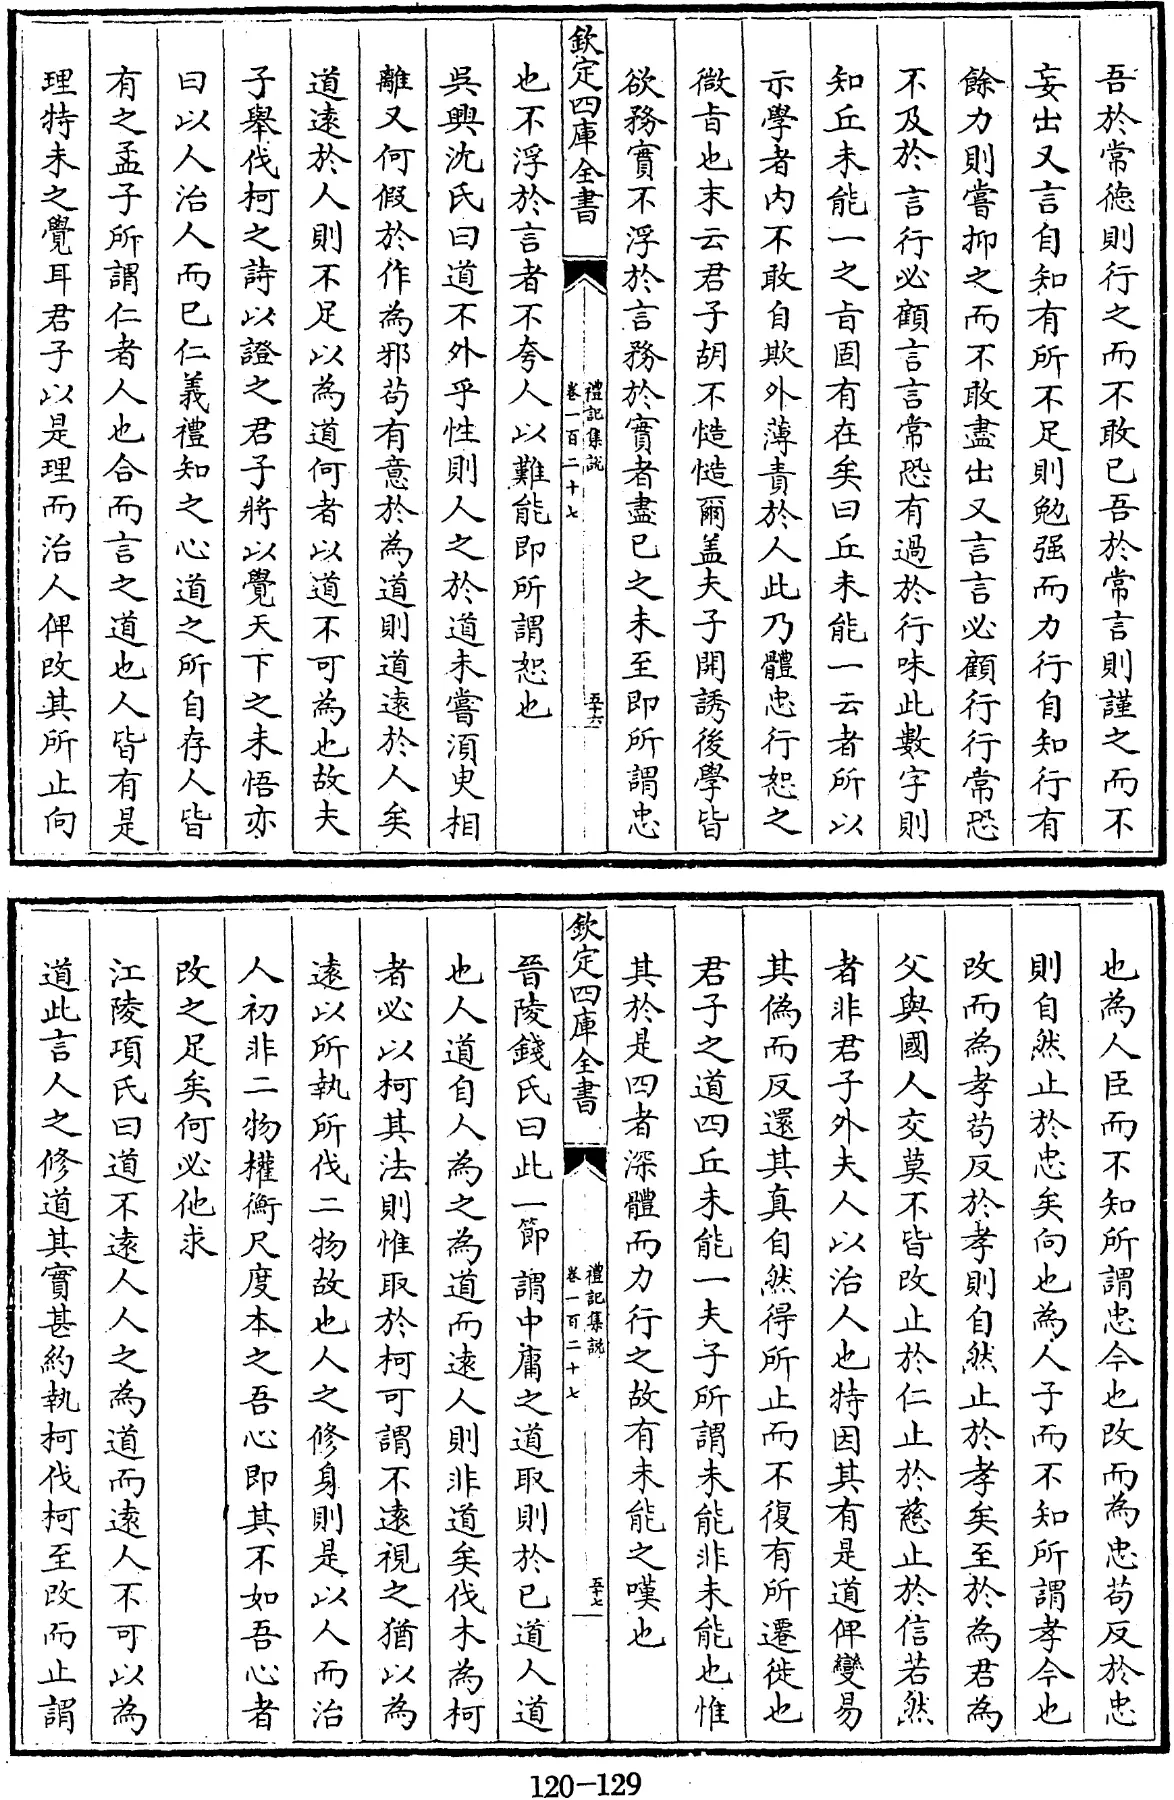 吾於常德則行之而不敢已吾於常言則謹之而不
妄出又言自知有所不足則勉强而力行自知行有
餘力則嘗抑之而不敢盡出又言言必顧行行常恐
不及於言行必顧言言常恐有過於行味此數字則
知丘未能一之旨固有在矣曰丘未能一云者所以
示學者内不敢自欺外薄責於人此乃體忠行恕之
微旨也末云君子胡不慥慥爾盖夫子開誘後學皆
欲務實不浮於言務於實者盡已之未至即所謂忠
欽定四庫全書
禮記集說
卷一百二十七
五十六
也不浮於言者不夸人以難能即所謂恕也
吳興沈氏曰道不外乎性則人之於道未嘗須臾相
離又何假於作為邪苟有意於為道則道遠於人矣
道遠於人則不足以為道何者以道不可為也故夫
子舉伐柯之詩以證之君子將以覺天下之未悟亦
曰以人治人而已仁義禮知之心道之所自存人皆
有之孟子所謂仁者人也合而言之道也人皆有是
理特未之覺耳君子以是理而治人俾改其所止向
也為人臣而不知所謂忠今也改而為忠苟反於忠
則自然止於忠矣向也為人子而不知所謂孝今也
改而為孝苟反於孝則自然止於孝矣至於為君為
父與國人交莫不皆改止於仁止於慈止於信若然
者非君子外夫人以治人也特因其有是道俾變易
其偽而反還其真自然得所止而不復有所遷徙也
君子之道四丘未能一夫子所謂未能非未能也惟
其於是四者深體而力行之故有未能之嘆也
欽定四庫全書
禮記集說
卷一百二十七
五十七
晉陵錢氏曰此一節謂中庸之道取則於已道人道
也人道自人為之為道而遠人則非道矣伐木為柯
者必以柯其法則惟取於柯可謂不遠視之猶以為
遠以所執所伐二物故也人之修身則是以人而治
人初非二物權衡尺度本之吾心即其不如吾心者
改之足矣何必他求
江陵項氏曰道不遠人人之為道而遠人不可以為
道此言人之修道其實甚約執柯伐柯至改而止謂
120-129